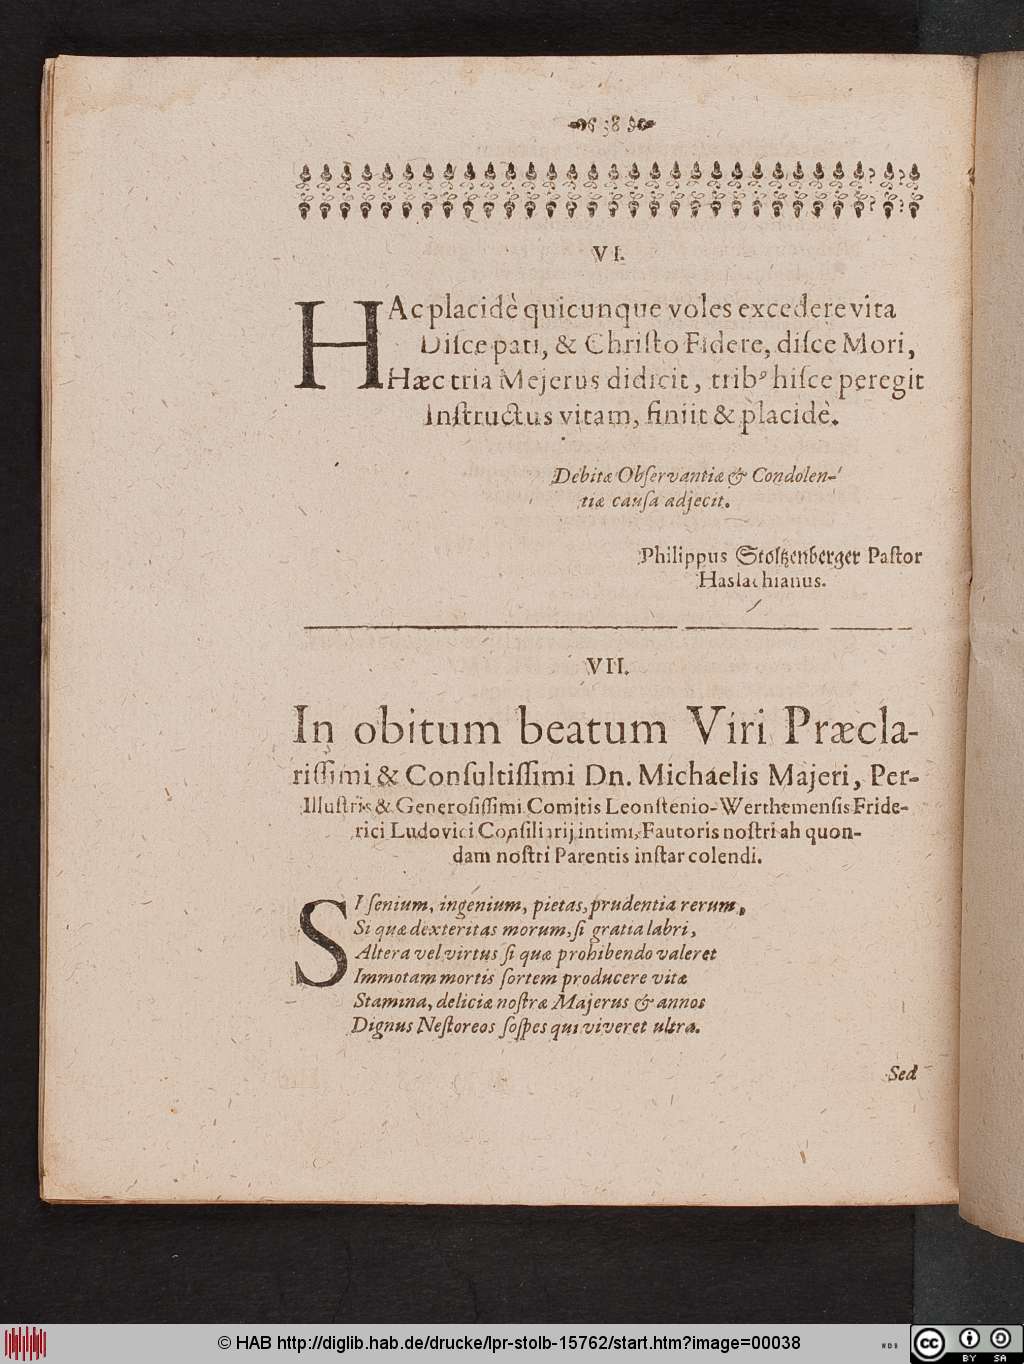 38
VI.
HAc placidè quicunque voles excedere vita
Diſce pati, & Chriſto Fidere, diſce Mori,
Hæc tria Mejerus didicit, tribꝰ hiſce peregit
Inſtructus vitam, finiit & placidè.
Debitæ Obſervantiæ & Condolen-
tiæ cauſa adjecit.
Philippus Stoltzenberger Paſtor
Haslachianus.
VII.
In obitum beatum Viri Præcla-
riſſimi & Conſultiſſimi Dn. Michaelis Majeri, Per-
Illuſtris & Generoſiſſimi Comitis Leonſtenio-Werthemensis Fride-
rici Ludovici Conſiliarij intimi, Fautoris noſtri ah quon-
dam noſtri Parentis inſtar colendi.
SI ſenium, ingenium, pietas, prudentia rerum,
Si quæ dexteritas morum, ſi gratia labri,
Altera vel virtus ſi quæ prohibendo valeret
Immotam mortis ſortem producere vitæ
Stamina, deliciæ noſtræ Majerus & annos
Dignus Neſtoreos ſoſpes qui viveret ultra.
Sed
© HAB http://diglib.hab.de/drucke/lpr-stolb-15762/start.htm?image=00038
WDB
cc
BY SA